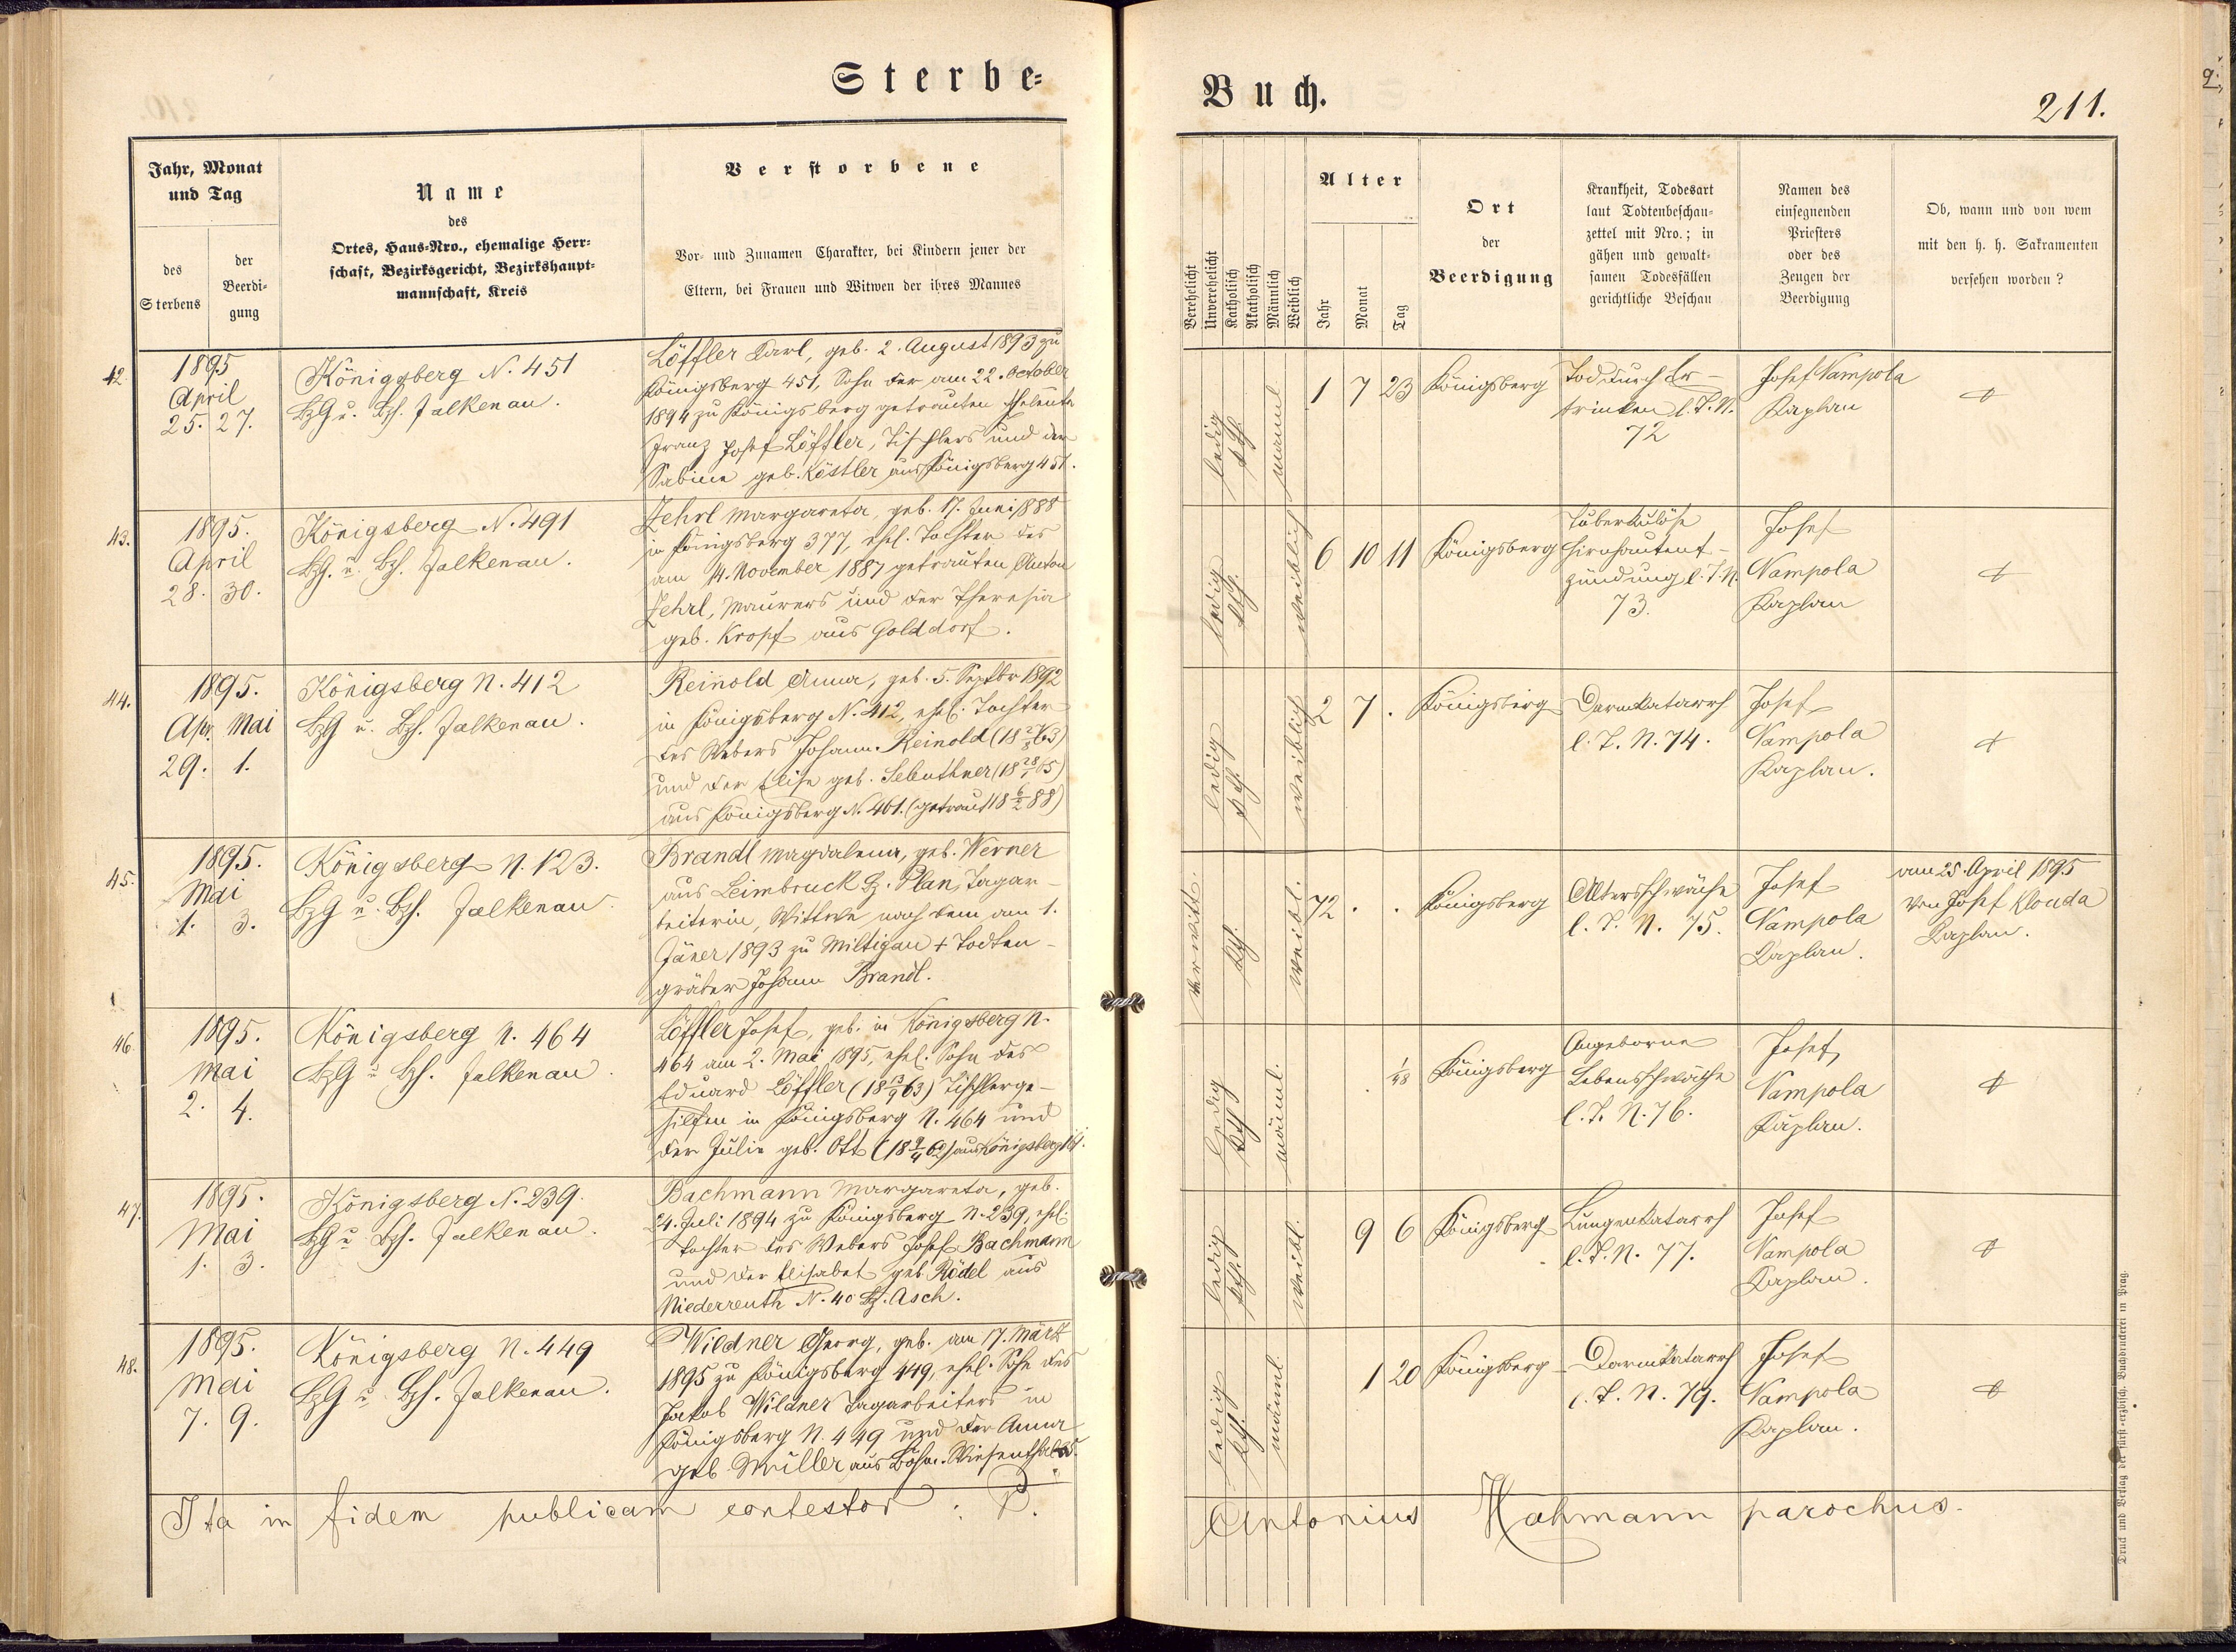 Sterbe-
Buch.
211.
Jahr, Monat
und Tag
des
Sterbens
der
Beerdi-
gung
Name
des
Ortes, Haus-Nro., ehemalige Herr-
schaft, Bezirksgericht, Bezirkshaupt-
mannschaft, Kreis
Verstorbene
Vor- und Zunamen Charakter, bei Kindern jener der
Eltern, bei Frauen und Witwen der ihres Mannes
Verehelicht
Unverehelicht
Katholisch
Akatholisch
Männlich
Weiblich
Alter
Jahr
Monat
Tag
Ort
der
Beerdigung
Krankheit, Todesart
laut Todtenbeschau-
zettel mit Nro.; in
gähen und gewalt-
samen Todesfällen
gerichtliche Beschau
Namen des
einsegnenden
Priesters
oder des
Zeugen der
Beerdigung
Ob, wann und von wem
mit den h. h. Sakramenten
versehen worden?
42.
1895
April
25. 27.
Königsberg N. 451
BzG u. Bzh. Falkenau.
Löffler Karl, geb. 2. August 1893 zu
Königsberg 451, Sohn der am 22. October
1894 zu Königsberg getrauten Eheleute
Franz Josef Löffler, Tischlers und der
Sabina geb. Köstler aus Königsberg 451.
ledig
kth.
männl.
1 7 23
Königsberg
Tod durch Er-
trinken l. T. N.
72
Josef Nampola
Kaplan
43.
1895.
April
28. 30.
Königsberg N. 491
BzG. u. Bzh. Falkenau.
Zehrl Margareta, geb. 17. Juni 1888
in Königsberg 377, ehel. Tochter des
am 14. November 1887 getrauten Anton
Zehrl, Maurers und der Theresia
geb. Kropf aus Golddorf.
ledig
kth.
weiblich
6 10 11
Königsberg
Tuberkulöse
Hirnhautent-
zündung l. T. N.
73.
Josef
Nampola
Kaplan
44.
1895.
Apr. Mai
29. 1.
Königsberg N. 412
BzG u. Bzh. Falkenau.
Reinold Anna, geb. 5. Septbr 1892
in Königsberg N. 412, ehel. Tochter
des Webers Johann Reinold
und der Elise geb.
aus Königsberg N. 461. (getraut 18 6/2 88)
ledig
kth.
weiblich
2 7 .
Königsberg
Darmkatarrh
l. T. N. 74.
Josef
Nampola
Kaplan.
45.
1895.
Mai
1. 3.
Königsberg N. 123.
BzG u. Bzh. Falkenau.
Brandl Magdalena, geb. Werner
aus Leimbruck Bz. Plan, Tagar-
beiterin, Wittwe nach dem am 1.
Jäner 1893 zu Miltigau + Todten-
gräber Johann Brandl.
verwitt.
kth.
weibl.
72 . .
Königsberg
Altersschwäche
l. T. N. 75.
Josef
Nampola
Kaplan.
am 25. April 1895
von Josef Klouda
Kaplan.
46.
1895.
Mai
2. 4.
Königsberg N. 464
BzG u. Bzh. Falkenau.
Löffler Josef, geb. in Königsberg N.
464 am 2. Mai 1895, ehel. Sohn des
Eduard Löffler (18 13/9 63) Tischlerge-
hilfen in Königsberg N. 464 und
der Julie geb. Ott
ledig
kth
männl.
1/48
Königsberg
Angeborne
Lebensschwäche
l. T. N. 76.
Josef
Nampola
Kaplan.
47.
1895.
Mai
1. 3.
Königsberg N. 239.
BzG u. Bzh. Falkenau.
Bachmann Margareta, geb.
24. Juli 1894 zu Königsberg N. 239, ehel.
Tochter des Webers Josef Bachmann
und der Elisabet geb. Rödel aus
Niederreuth N. 40 Bz. Asch.
ledig
kth.
weibl.
9 6
Königsberg
Lungenkatarrh
l. T. N. 77.
Josef
Nampola
Kaplan.
48.
1895.
Mai
7. 9.
Königsberg N. 449
BzG u. Bzh. Falkenau.
Wildner Georg, geb. am 17. März
1895 zu Königsberg 449, ehel. Sohn des
Jakob Wildner Tagarbeiters in
Königsberg N. 449 und der Anna
geb. Müller aus Böhm. Wiesenthal
ledig
kth.
männl.
1 20
Königsberg
Darmkatarrh
l. T. N. 79.
Josef
Nampola
Kaplan.
Ita in fidem publicam contestor: P. Antonius Hahmann parochus.
Druck und Verlag der fürst-erzbisch. Buchdruckerei in Prag.